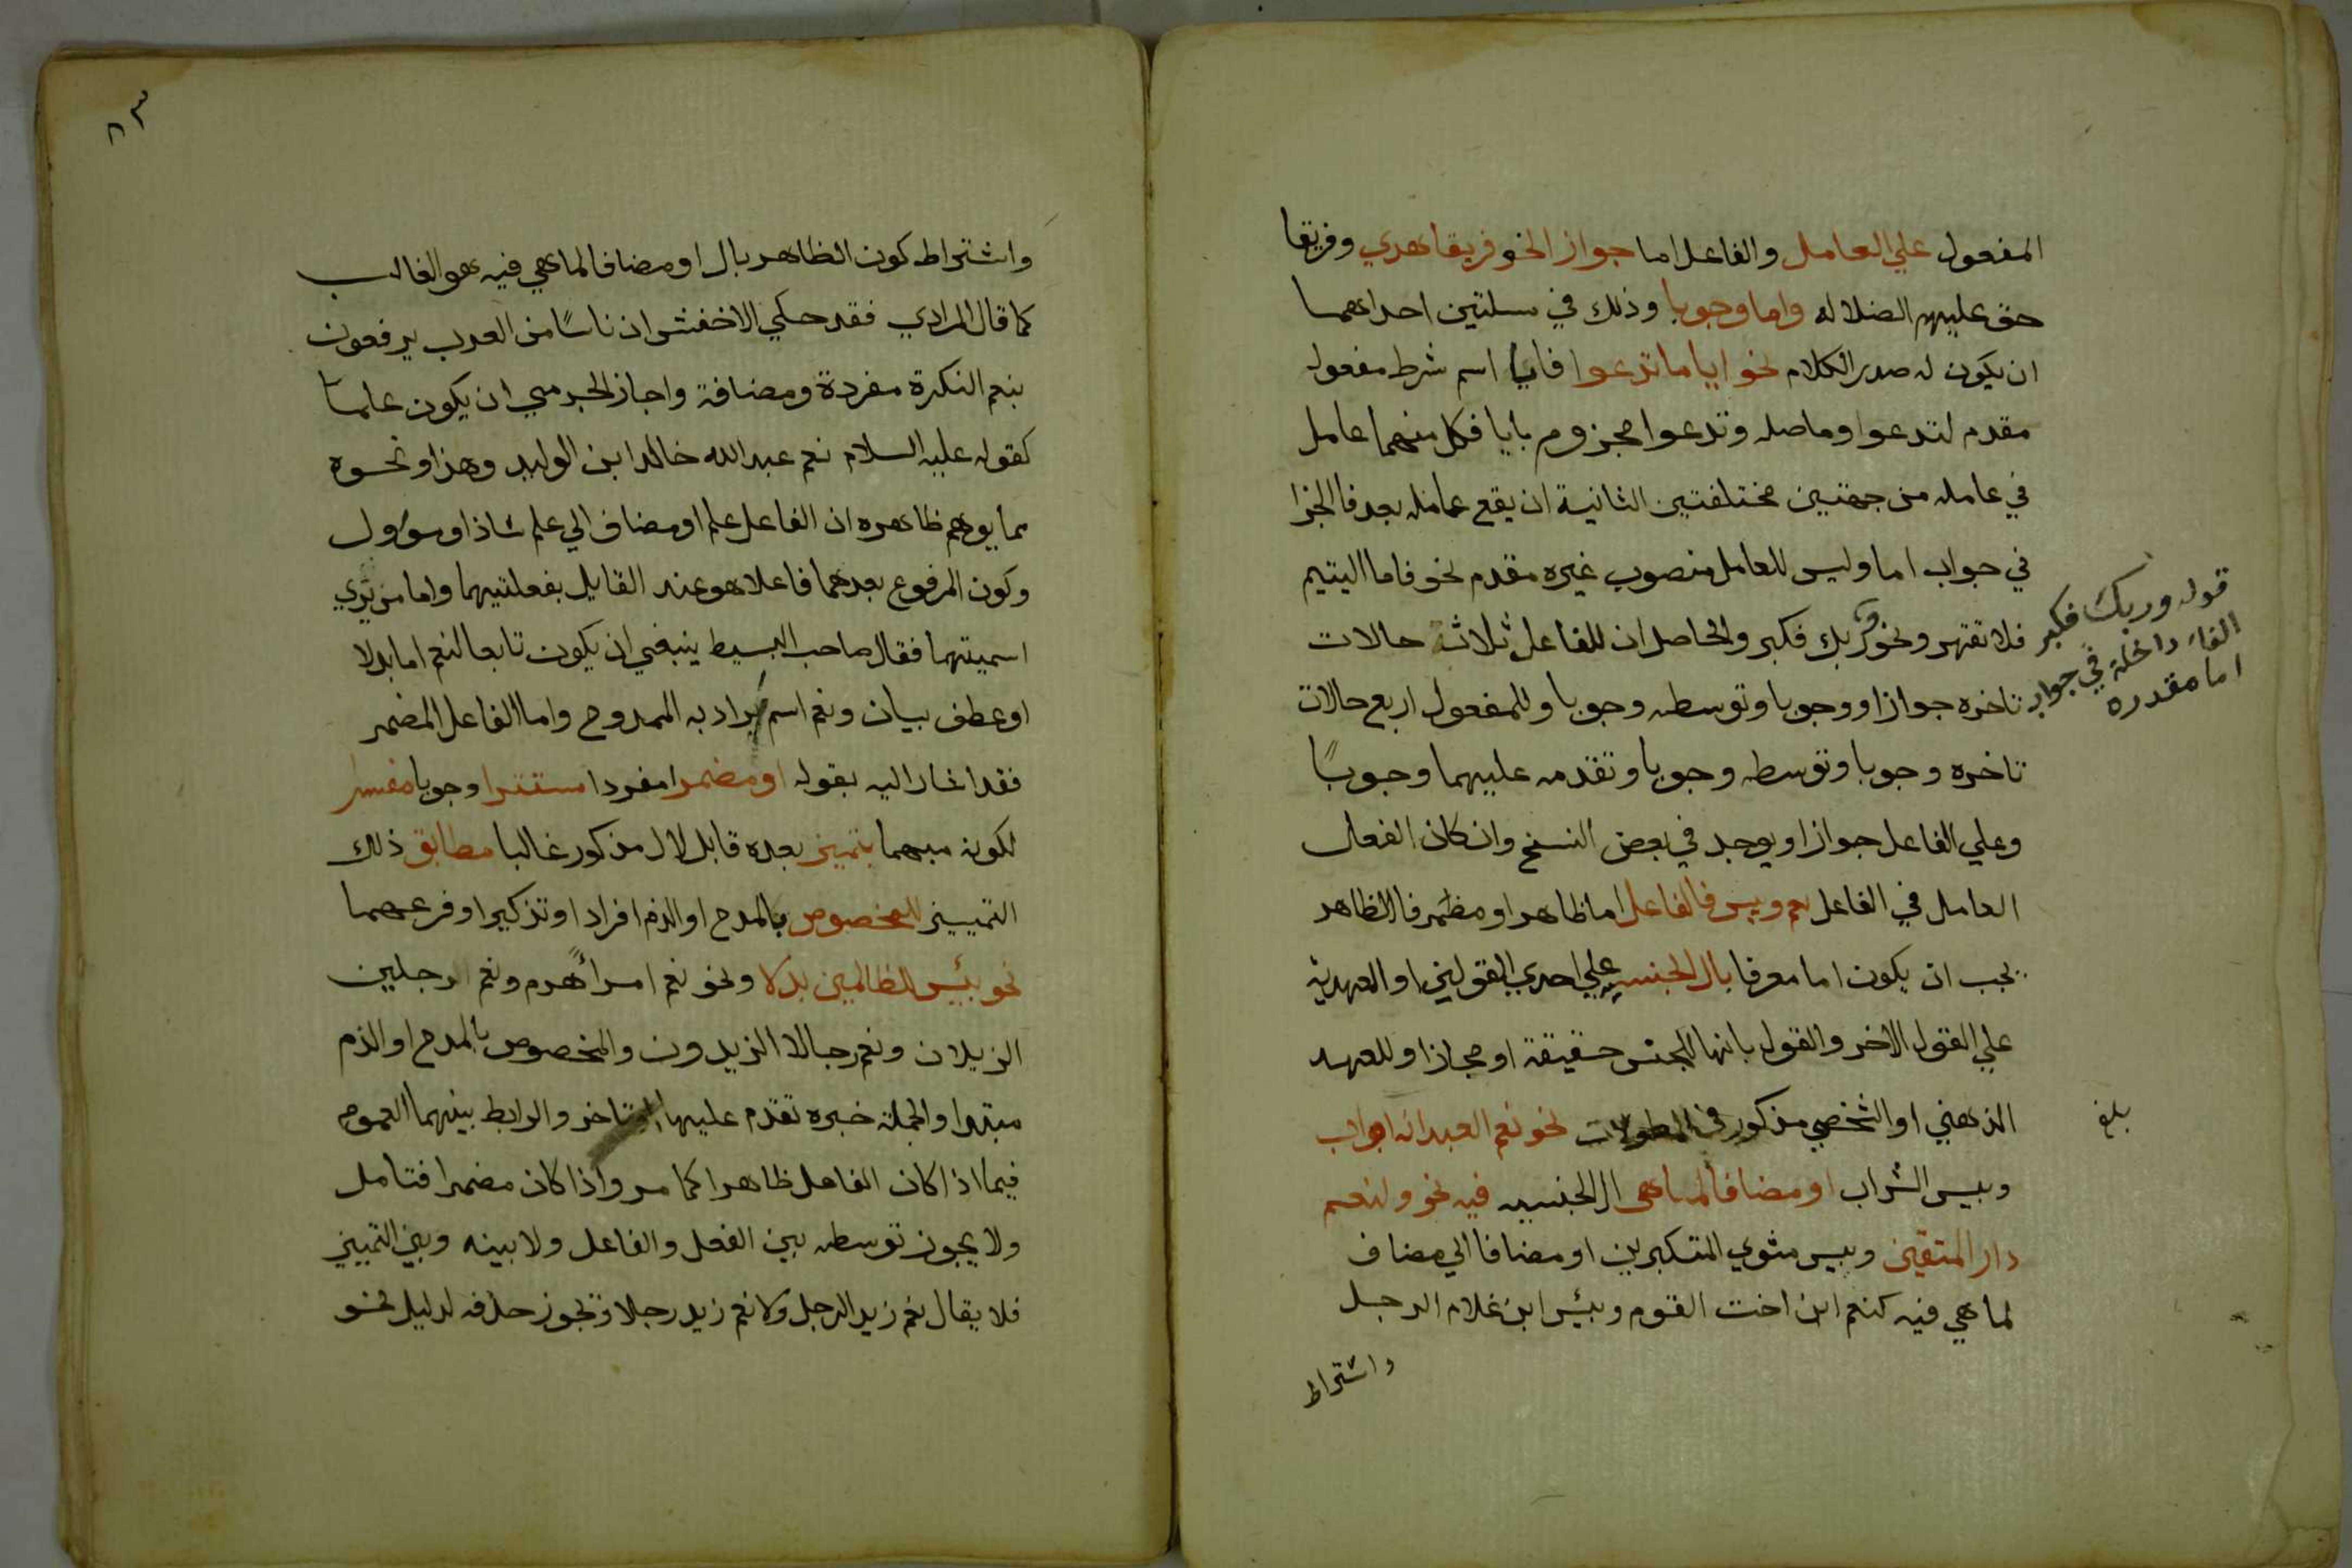 المفعول علي العامل والفاعل اما جواز النحو فريقا هدي وفريقا
حق عليهم الضلاله واما وجوبا وذلك في مسلتين احداهما
ان يكون له صدر الكلام نحو ايا ما تدعوا فايا اسم شرط مفعول
مقدم لتدعوا وما صله وتدعوا مجزوم بايا فكل منهما عامل
في عامله من جهتين مختلفتين الثانية ان يقع عامله بعد فا الجزا
في جواب اما وليس للعامل منصوب غيره مقدم نحو فاما اليتيم
فلا تقهر ونحو وربك فكبر والحاصل ان للفاعل ثلاثة حالات
تاخره جوازا ووجوبا وتوسطه وجوبا وللمفعول اربع حالات
تاخره وجوبا وتوسطه وجوبا وتقدمه عليهما وجوبًا
وعلي الفاعل جوازا ويوجد في بعض النسخ وان كان الفعل
العامل في الفاعل نعم وبيس فالفاعل اما ظاهر او مضمر فالظاهر
يجب ان يكون اما معرفا بال الجنسية علي احدي القولين او العهدية
علي القول الاخر والقول بانها للجنس حقيقة او مجازا وللعهد
الذهني او الشخصي مذكور في المطولات نحو نعم العبد انه اواب
وبيس الشراب او مضافا لما هي ال الجنسيه فيه نحو ولنعم
دار المتقين وبيس مثوي المتكبرين او مضافا الي مضاف
لما هي فيه كنعم ابن اخت القوم وبئس ابن غلام الرجل
واشتراط
قوله وربك فكبر
الفاء داخلة في جواب
اما مقدره
بلغ
٨٣
واشتراط كون الظاهر بال او مضافا لما هي فيه هو الغالب
كما قال المرادي فقد حكي الاخفش ان ناسًا من العرب يرفعون
بنعم النكرة مفردة ومضافة واجاز الجرمي ان يكون علما
كقوله عليه السلام نعم عبد الله خالد ابن الوليد وهذا ونحوه
مما يوهم ظاهره ان الفاعل علم او مضاف الي علم شاذ او مؤول
وكون المرفوع بعدهما فاعلا هو عند القايل بفعليتهما واما من يري
اسميتهما فقال صاحب البسيط ينبغي ان يكون تابعا لنعم اما بدلا
او عطف بيان ونعم اسم يراد به الممدوح واما الفاعل المضمر
فقد اشار اليه بقوله او مضمرا مفردا مستترا وجوبا مفسرا
لكونه مبهما بتمييز بعده قابل لال مذكور غالبا مطابق ذلك
التمييز للمخصوص بالمدح او الذم افرادا وتذكيرا وفرعهما
نحو بئس للظالمين بدلا ونحو نعم امرأ هرم ونعم رجلين
الزيدان ونعم رجالا الزيدون والمخصوص بالمدح او الذم
مبتدا والجملة خبره تقدم عليها او تاخر والرابط بينهما العموم
فيما اذا كان الفاعل ظاهرا كما مر واذا كان مضمرا فتامل
ولا يجوز توسطه بين الفعل والفاعل ولا بينه وبين التمييز
فلا يقال نعم زيد الرجل ولا نعم زيد رجلا ويجوز حذفه لدليل نحو